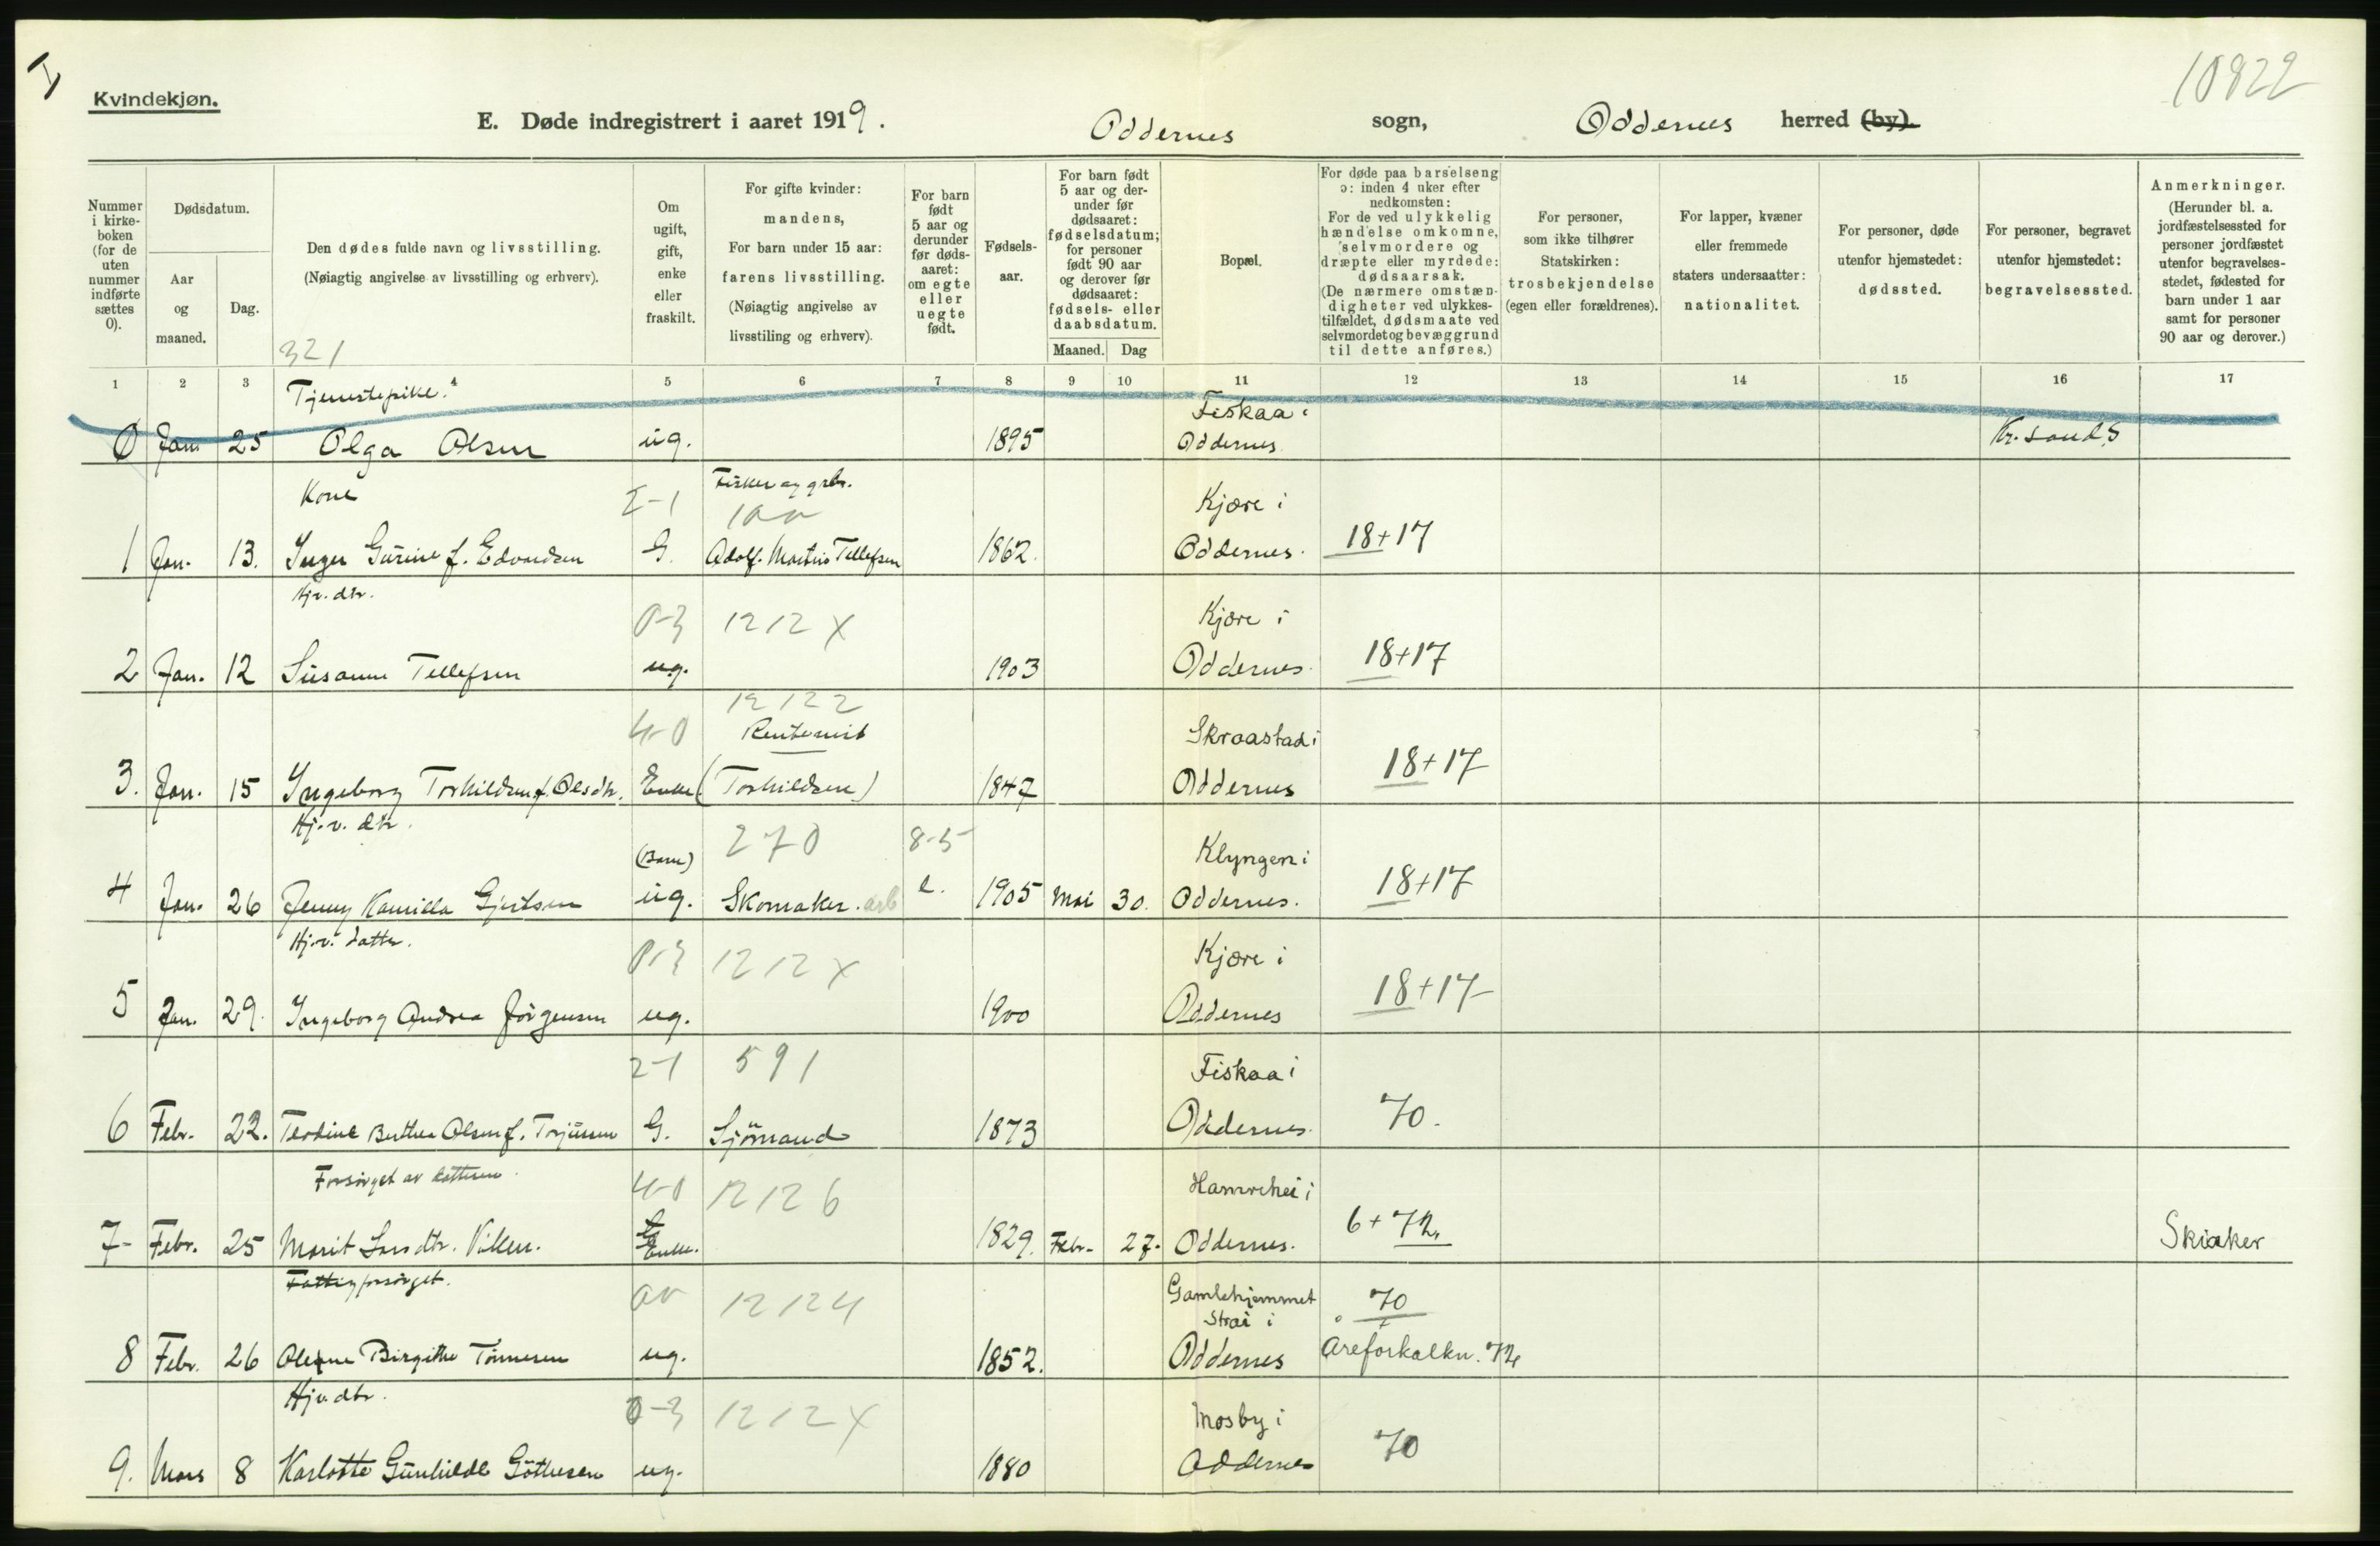 I
10822
Kvindekjøn.
E. Døde indregistrert i aaret 1919. Oddernes sogn, Oddernes herred (by).
Nummer i kirke-boken (for de uten nummer indførte sættes 0).
Dødsdatum.
Aar og maaned.
Dag.
Den dødes fulde navn og livsstilling.
(Nøiagtig angivelse av livsstilling og erhverv).
321
Om ugift, gift, enke eller fraskilt.
For gifte kvinder: mandens, For barn under 15 aar: farens livsstilling. (Nøiagtig angivelse av livsstiling og erhverv).
For barn født 5 aar og derunder før døds-aaret: om egte eller uegte født.
Fødsels-aar.
For barn født 5 aar og der-under før dødsaaret: fødselsdatum; for personer født 90 aar og derover før dødsaaret: fødsels- eller daabsdatum.
Maaned. Dag
Bopæl.
For døde paa barselseng ɔ: inden 4 uker efter nedkomsten: For de ved ulykkelig hændelse omkomne, selvmordere og dræpte eller myrdede: dødsaarsak. (De nærmere omstæn-digheter ved ulykkes-tilfældet, dødsmaate ved selvmordet og bevæggrund til dette anføres.)
For personer, som ikke tilhører Statskirken: trosbekjendelse (egen eller forældrenes).
For lapper, kvæner eller fremmede staters undersaatter: nationalitet.
For personer, døde utenfor hjemstedet: dødssted.
For personer, begravet utenfor hjemstedet: begravelsessted.
Anmerkninger. (Herunder bl. a. jordfæstelsessted for personer jordfæstet utenfor begravelses-stedet, fødested for barn under 1 aar samt for personer 90 aar og derover.)
1 2 3 4 5 6 7 8 9 10 11 12 13 14 15 16 17
Tjenestepike. Fiskaa i
0 Jan 25 Olga Olsen ug. 1895 Oddernes Kr.sand S
Kone 2-1 Fisker og grbr. Kjære i
1 Jan. 13. Inger Gurine f. Edvardsen G. Adolf Martin Tellefsen 1862. Oddernes. 18+17
Hjv. dtr. 0-3 1212X Kjære i
2 Jan. 12 Susanne Tellefsen ug. 1903 Oddernes. 18+17
12122
4-0 Rentenist Skraastad i
3. Jan. 15 Ingeborg Torkildsen f. Olsdtr. Enke (Torkildsen) 1847 Oddernes 18+17
Hj.v. dtr. (Barn) 270 8-5 Klyngen i
4 Jan. 26 Jenny Kamilla Gjertsen ug. Skomaker. arb e. 1905 Mai 30. Oddernes. 18+17
Hj.v. datter. 0-3 1212X Kjære i
5 Jan. 29. Ingeborg Andrea Jörgensen ug. 1900 Oddernes 18+17
2-1 591 Fiskaa i
6 Febr. 22. Berthea Olsen f. Torjusen G. Sjömand 1873 Oddernes. 70.
Forsörget av datteren. 4-0 12126 Hamrehei i
7 Febr. 25 Marit Larsdtr. Enke. 1829. Febr. 27. Oddernes. 6+72. Skiaker
Fattigforsörget. 12124 Gamlehjemmet Strai i 70
8 Febr. 26 Olene Birgithe Tönnesen ug. 1852. Oddernes Åreforkalkn. 72
Hjv. dtr. 0-3 1212X Mosby i
9. Mars 8 Karlotte Gunhilde Göthesen ug. 1880 Oddernes 70